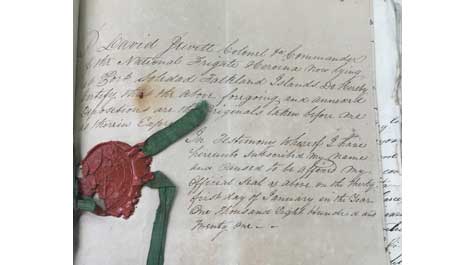 David Jewett Colonel & Commander
of the National Frigate Heroina now lying
Port Soledad Falkland Islands Do hereby
certify, that the above foregoing and annexed
depositions are the originals taken before me
as therein
In Testimony whereof I have
hereunto Subscribed my name
and caused to be affixed my
Official Seal as above on the thirty
first day of January in the Year
One thousand Eight hundred and
Twenty one